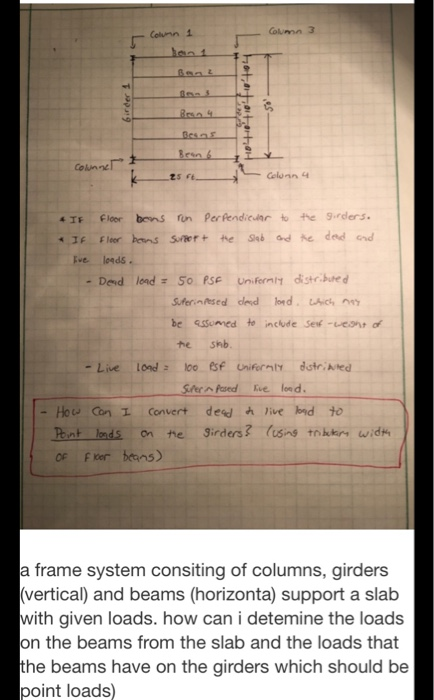 Column 1
Column 3
beam 1
Beam 2
Beam 3
Girder 1
Beam 4
Beam 5
Beam 6
25 ft
Column 4
* If floor beams run perpendicular to the girders.
* If floor beams support the slab and the dead and
live loads.
- Dead load = 50 PSF uniformly distributed
Superimposed dead load. which may
be assumed to include self-weight of
the slab.
- Live load = 100 PSF uniformly distributed
Superimposed live load.
- How can I convert dead & live load to
Point loads on the girders? (using tributary width
of floor beams)
a frame system consiting of columns, girders
(vertical) and beams (horizonta) support a slab
with given loads. how can i detemine the loads
on the beams from the slab and the loads that
the beams have on the girders which should be
point loads)